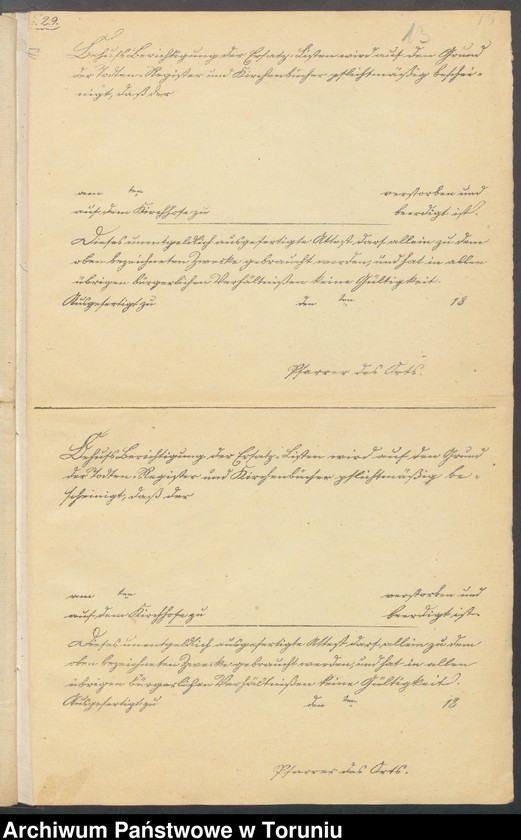 29.
13
Behufs Berichtigung der Ersatz-Listen wird auf den Grund
der Todten-Register und Kirchenbücher pflichtmäßig beschei-
nigt, daß der
am ten verstorben und
auf dem Kirchhofe zu beerdigt ist.
Dieses unentgeldlich ausgefertigte Attest darf allein zu dem
oben bezeichneten Zwecke gebraucht werden, und hat in allen
übrigen bürgerlichen Verhältnißen keine Gültigkeit.
Ausgefertigt zu den ten 18
Pfarrer des Orts.
Behufs Berichtigung der Ersatz-Listen wird auf den Grund
der Todten-Register und Kirchenbücher pflichtmäßig be-
scheinigt, daß der
am ten verstorben und
auf dem Kirchhofe zu beerdigt ist.
Dieses unentgeldlich ausgefertigte Attest darf allein zu dem
oben bezeichneten Zwecke gebraucht werden, und hat in allen
übrigen bürgerlichen Verhältnißen keine Gültigkeit.
Ausgefertigt zu den ten 18
Pfarrer des Orts.
Archiwum Państwowe w Toruniu